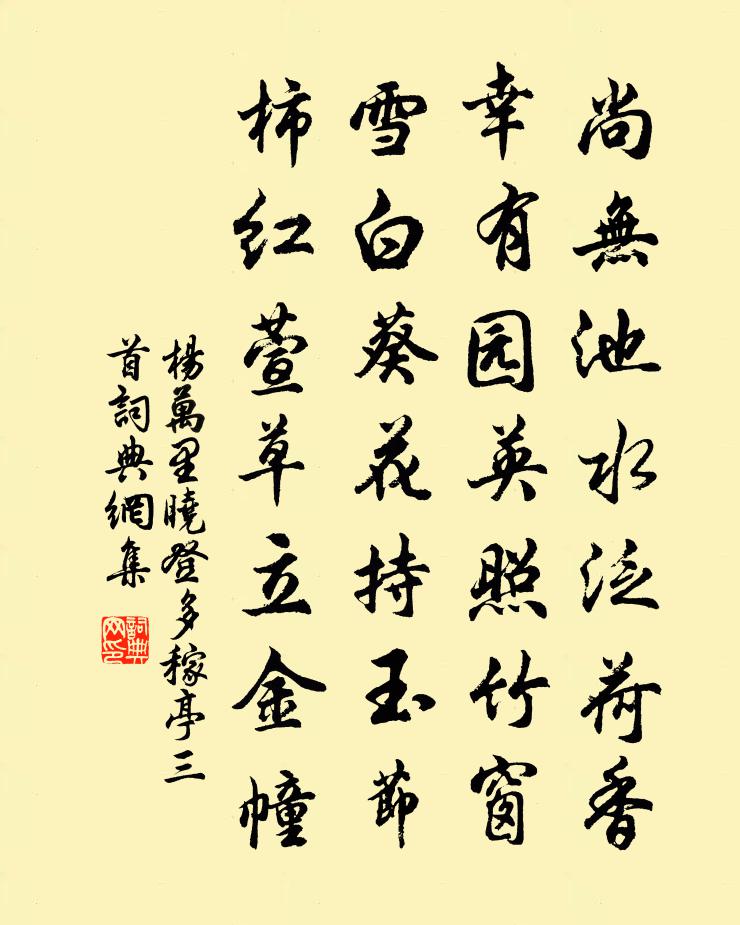 尚無池水泛荷香
幸有园英照竹窗
雪白葵花持玉節
柿红萱草立金幢
楊萬里曉登多稼亭三
首詞典網集
詞典
网印